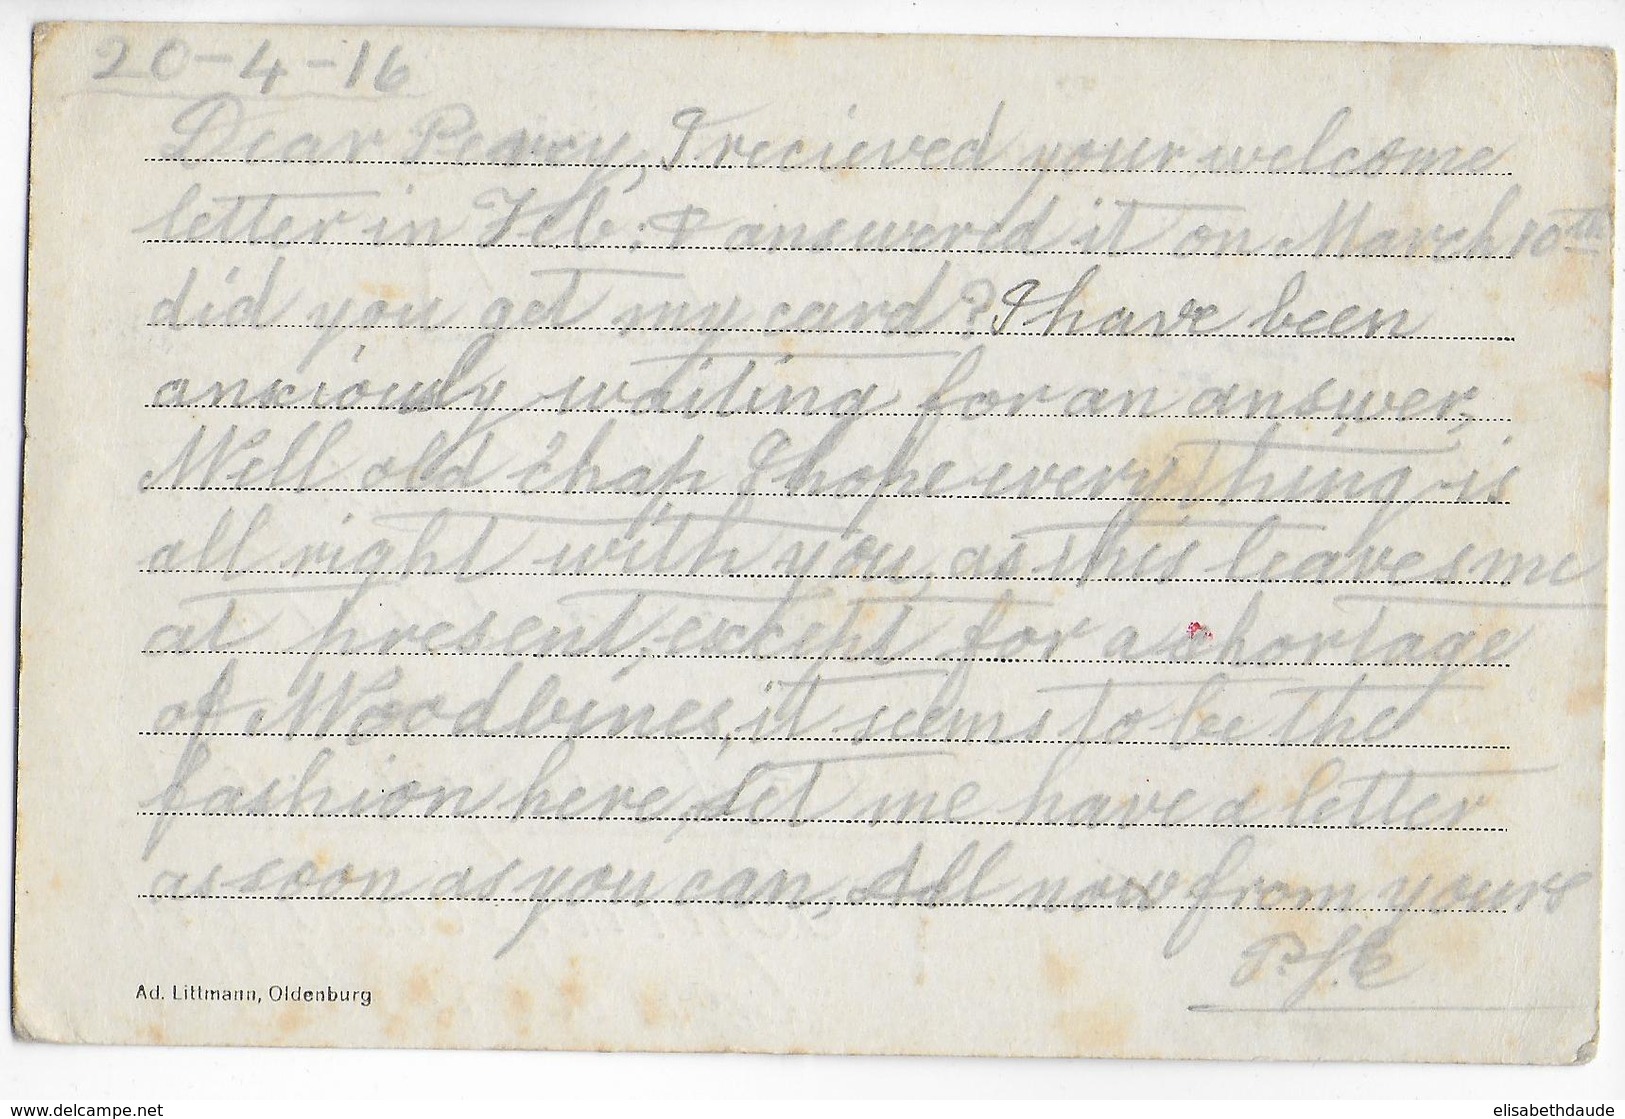 20-4-16
Dear Percy, I recieved your welcome
letter in Feb: & answered it on March 10th
did you get my card? I have been
anxiously waiting for an answer,
Well old chap I hope every thing is
all right with you, as this leaves me
at present, except for a shortage
of Woodbines, it seems to be the
fashion here, Let me have a letter
as soon as you can, All now from yours
Ad. Littmann, Oldenburg
delcampe.net
elisabethdaude